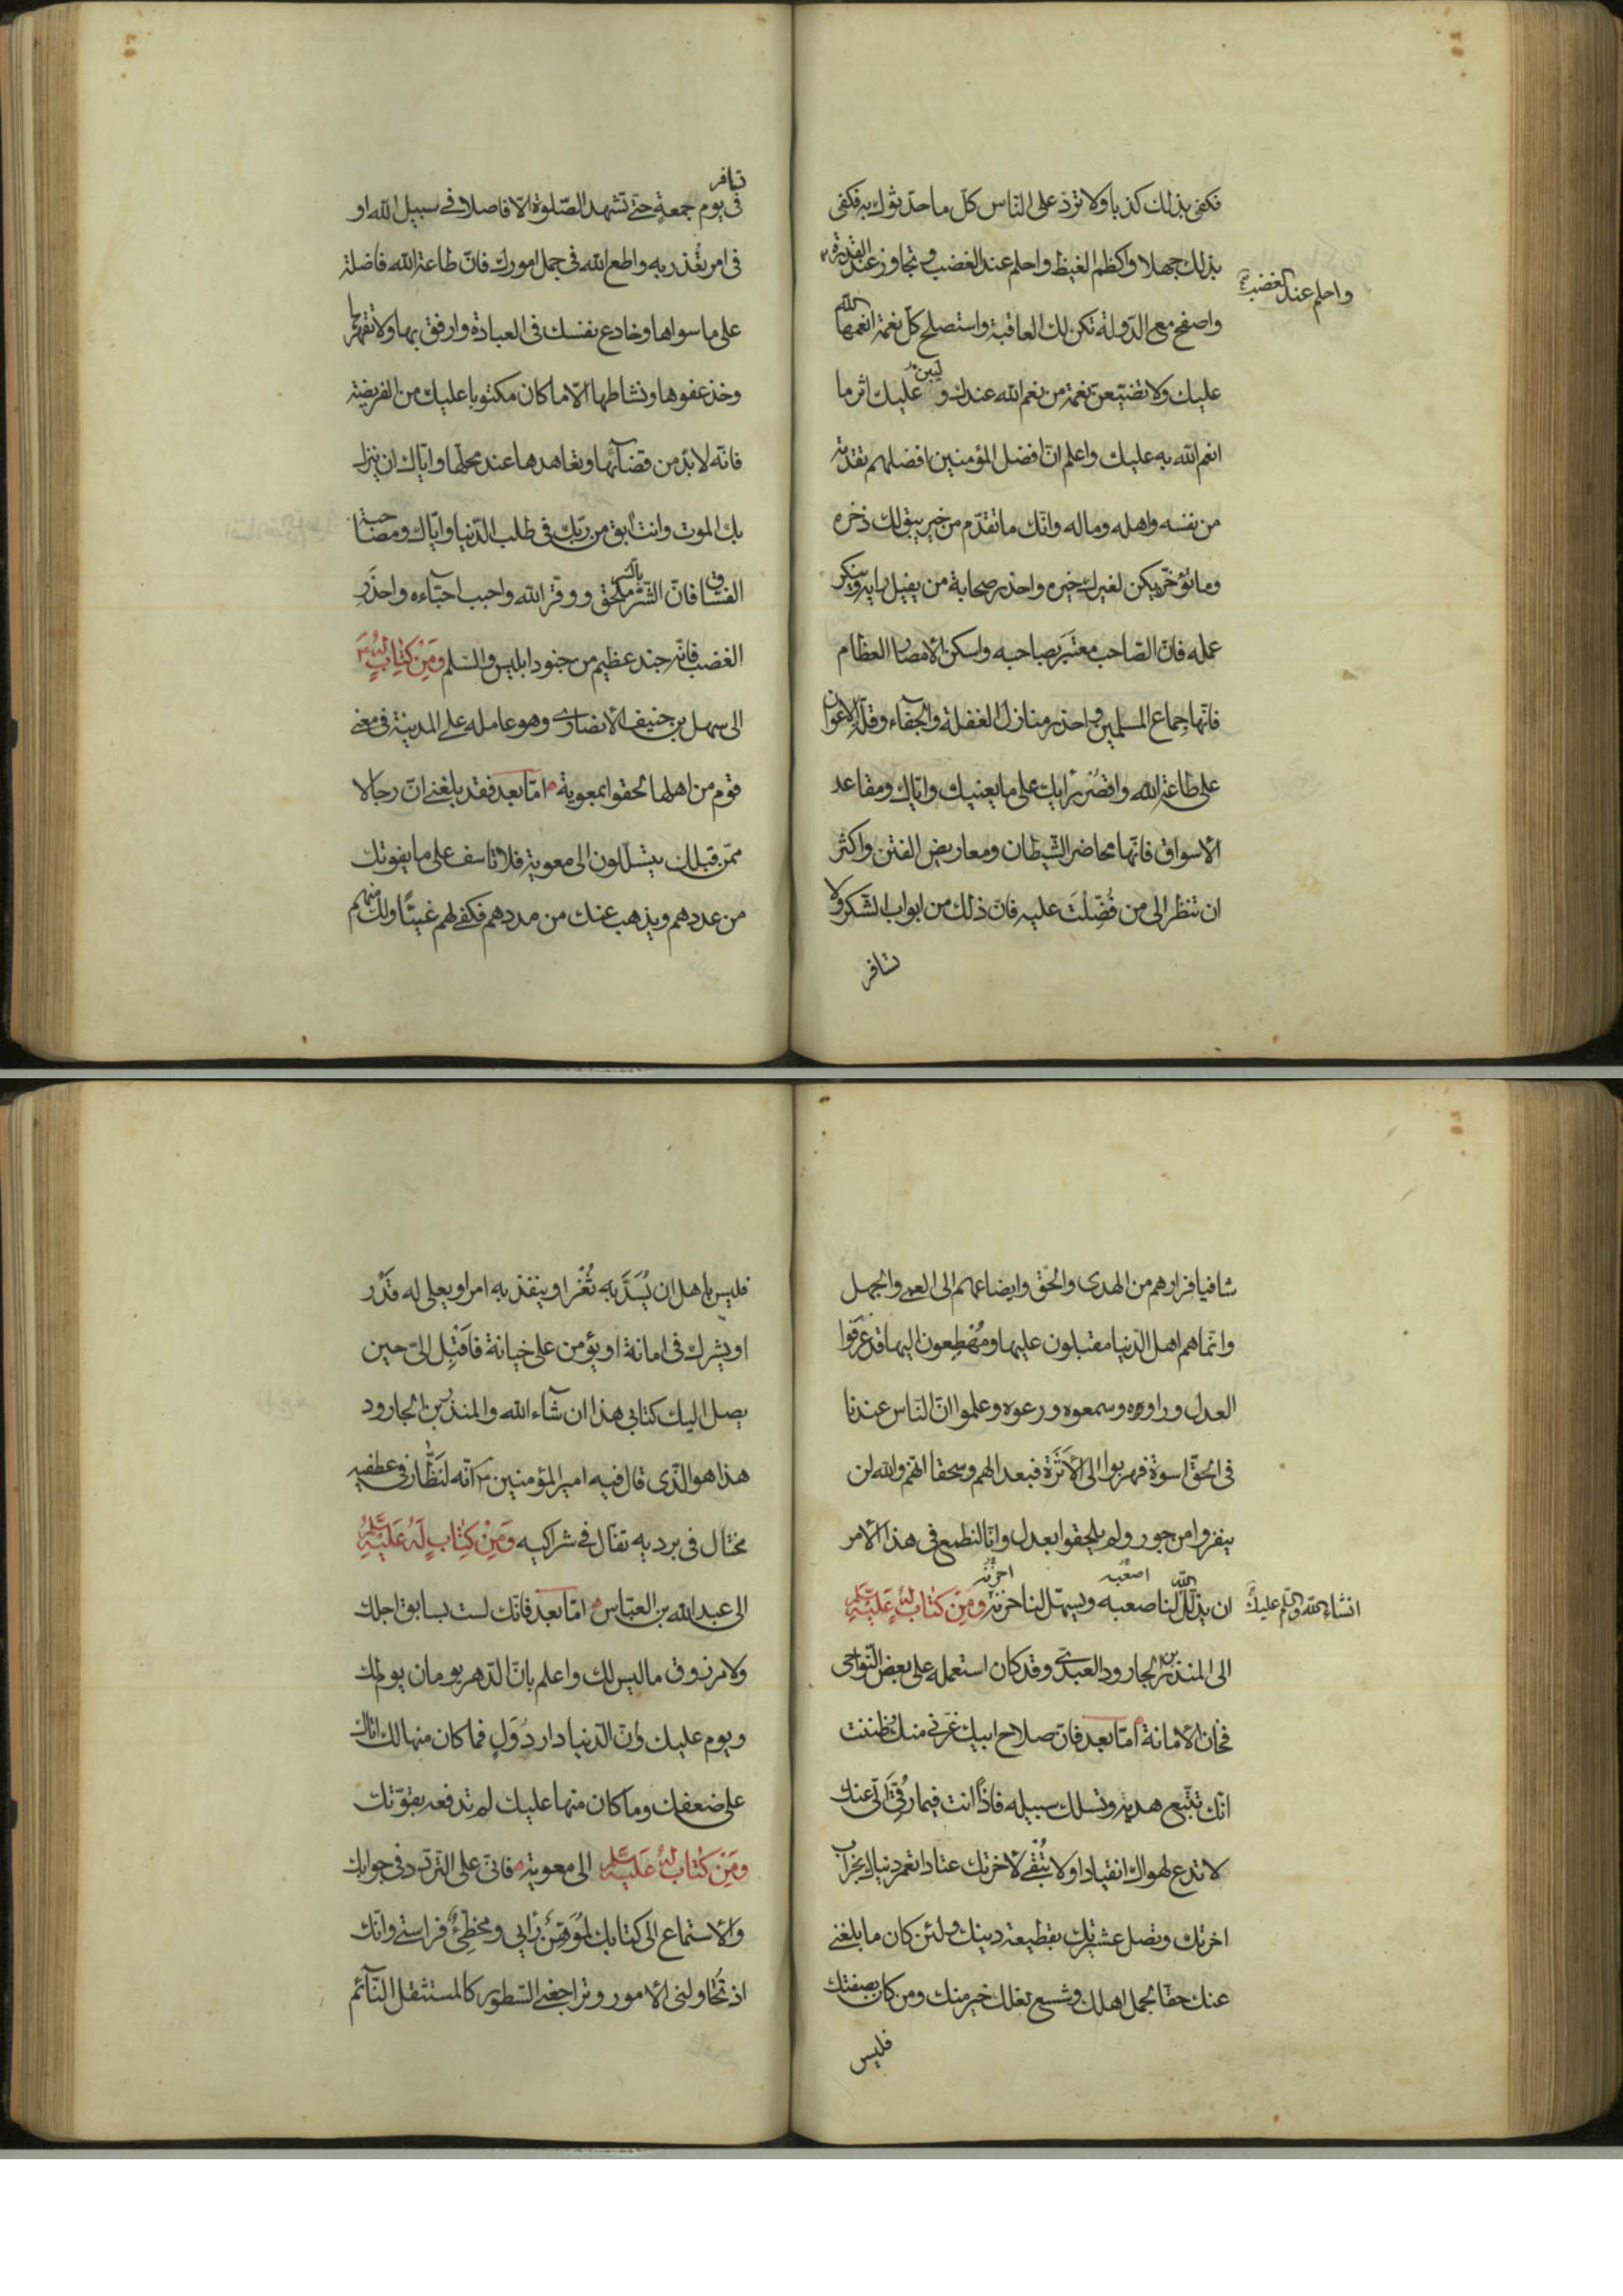 فكفى بذلك كذبا ولا تردّ على الناس كلّ ما حدّثوك به فكفى
بذلك جهلا واكظم الغيظ واحلم عند الغضب وتجاوز عند القدرة
واحلم عند الغضب
واصفح مع الدّولة تكن لك العاقبة واستصلح كلّ نعمة انعمها الله
عليك ولا تضيّعنّ نعمة من نعم الله عندك ولیبن عليك اثر ما
انعم الله به عليك واعلم انّ افضل المؤمنين افضلهم تقدمة
من نفسه واهله وماله وانّك ما تقدّم من خير يبق لك ذخره
وما تؤخّر يكن لغيرك خيره واحذر صحابة من يفيل رايه وينكر
عمله فانّ الصّاحب معتبَر بصاحبه واسكن الامصار العظام
فانّها جماع المسلمين واحذر منازل الغفلة والجفاء وقلّة الاعوان
على طاعة الله واقصُر رايك على ما يعنيك وايّاك ومقاعد
الاسواق فانّها محاضر الشّيطان ومعاريض الفتن واكثر
ان تنظر الى من فُضّلتَ عليه فانّ ذلك من ابواب الشكر ولا
تسافر
تسافر
فى يوم جمعةٍ حتّى تشهد الصّلوة الّا فاصلا فى سبيل الله او
فى امر تُعذر به واطع الله فى جمل امورك فانّ طاعة الله فاضلة
على ما سواها وخادع نفسك فى العبادة وارفق بها ولا تقهرها
وخذ عفوها ونشاطها الّا ما كان مكتوبا عليك من الفريضة
فانّه لا بدّ من قضآئها وتعاهدها عند محلّها وايّاك ان ينزل
بك الموت وانت آبق من ربّك فى طلب الدّنيا وايّاك ومصاحبة
الفسّاق فانّ الشّرّ بالشّرّ ملحق ووقّر الله واحبب احبّآءه واحذَرِ
الغضب فانّه جند عظيم من جنود ابليس والسّلم ومِن كِتابٍ لهُ
الى سهل بن حنيف الانصارى وهو عامله على المدينة فى معنى
قوم من اهلها لحقوا بمعوية امّا بعد فقد بلغنى انّ رجالا
ممّن قبلك يتسلّلون الى معوية فلا تاسف على ما يفوتك
من عددهم ويذهب عنك من مددهم فكفى لهم غيّاً ولك منهم
شافيا فرارهم من الهدى والحقّ وايضاعهم الى العمى والجهل
وانّما هم اهل الدّنيا مقبلون عليها ومُهْطِعون اليها قد عَرَفوا
العدل وراوه وسمعوه ووعوه وعلموا انّ الناس عندنا
فى الحقّ اسوة فهربوا الى الاَثَرَة فبعدا لهم وسحقا انّهم والله لن
ينفروا من جور ولم يلحقوا بعدل وانّا لنطمع فى هذا الامر
اصعبه احزنه
ان يذلّل الله لنا صعبه ويسهّل لنا حزنه ومِن كتابٍ لهُ عَليه السّلم
انشاءالله والسّلم عليك
الى المنذر بن الجارود العبدىّ وقد كان استعمله على بعض النّواحى
فخان الامانة امّا بعد فانّ صلاح ابيك غرّنى منك وظننت
انّك تتّبع هديه وتسلك سبيله فاذًا انت فيما رُقّىَ الىّ عنك
لا تدع لهواك انقيادا ولا تُبْقى لاخرتك عتادا تعمر دنياك بخراب
اخرتك وتصل عشيرتك بقطيعة دينك ولئن كان ما بلغنى
عنك حقّا لجمل اهلك وشسع نعلك خير منك ومن كان بصفتك
فليس
فليس باهل ان يُسَدَّ به ثَغْر او ينفذ به امر او يعلى له قَدْر
او يشرك فى امانة او يؤمن على خيانة فاَقبِل الىّ حين
يصل اليك كتابى هذا ان شآء الله والمنذر بن الجارود
هذا هو الّذى قال فيه امير المؤمنين انّه لَنَظّار فى عطفيه
مختال فى برديه تفّال فى شراكيه وَمِنْ كِتابٍ لَهُ عَليْهِ السّلم
الى عبد الله بن العبّاس امّا بعد فانّك لست بسابق اجلك
ولا مرزوق ما ليس لك واعلم بانّ الدّهر يومان يوم لك
ويوم عليك وانّ الدّنيا دار دُوَلٍ فما كان منها لك اتاك
على ضعفك وما كان منها عليك لم تدفعه بقوّتك
ومِن كتاب لهُ عَليه السّلم الى معوية فانّى على التّردّد فى جوابك
والاستماع الى كتابك لمُوَهِّنٌ رأيى ومخطّئٌ فراستى وانّك
اذ تُحاولنى الامور وتراجعنى السّطور كالمستثقل النّآئم